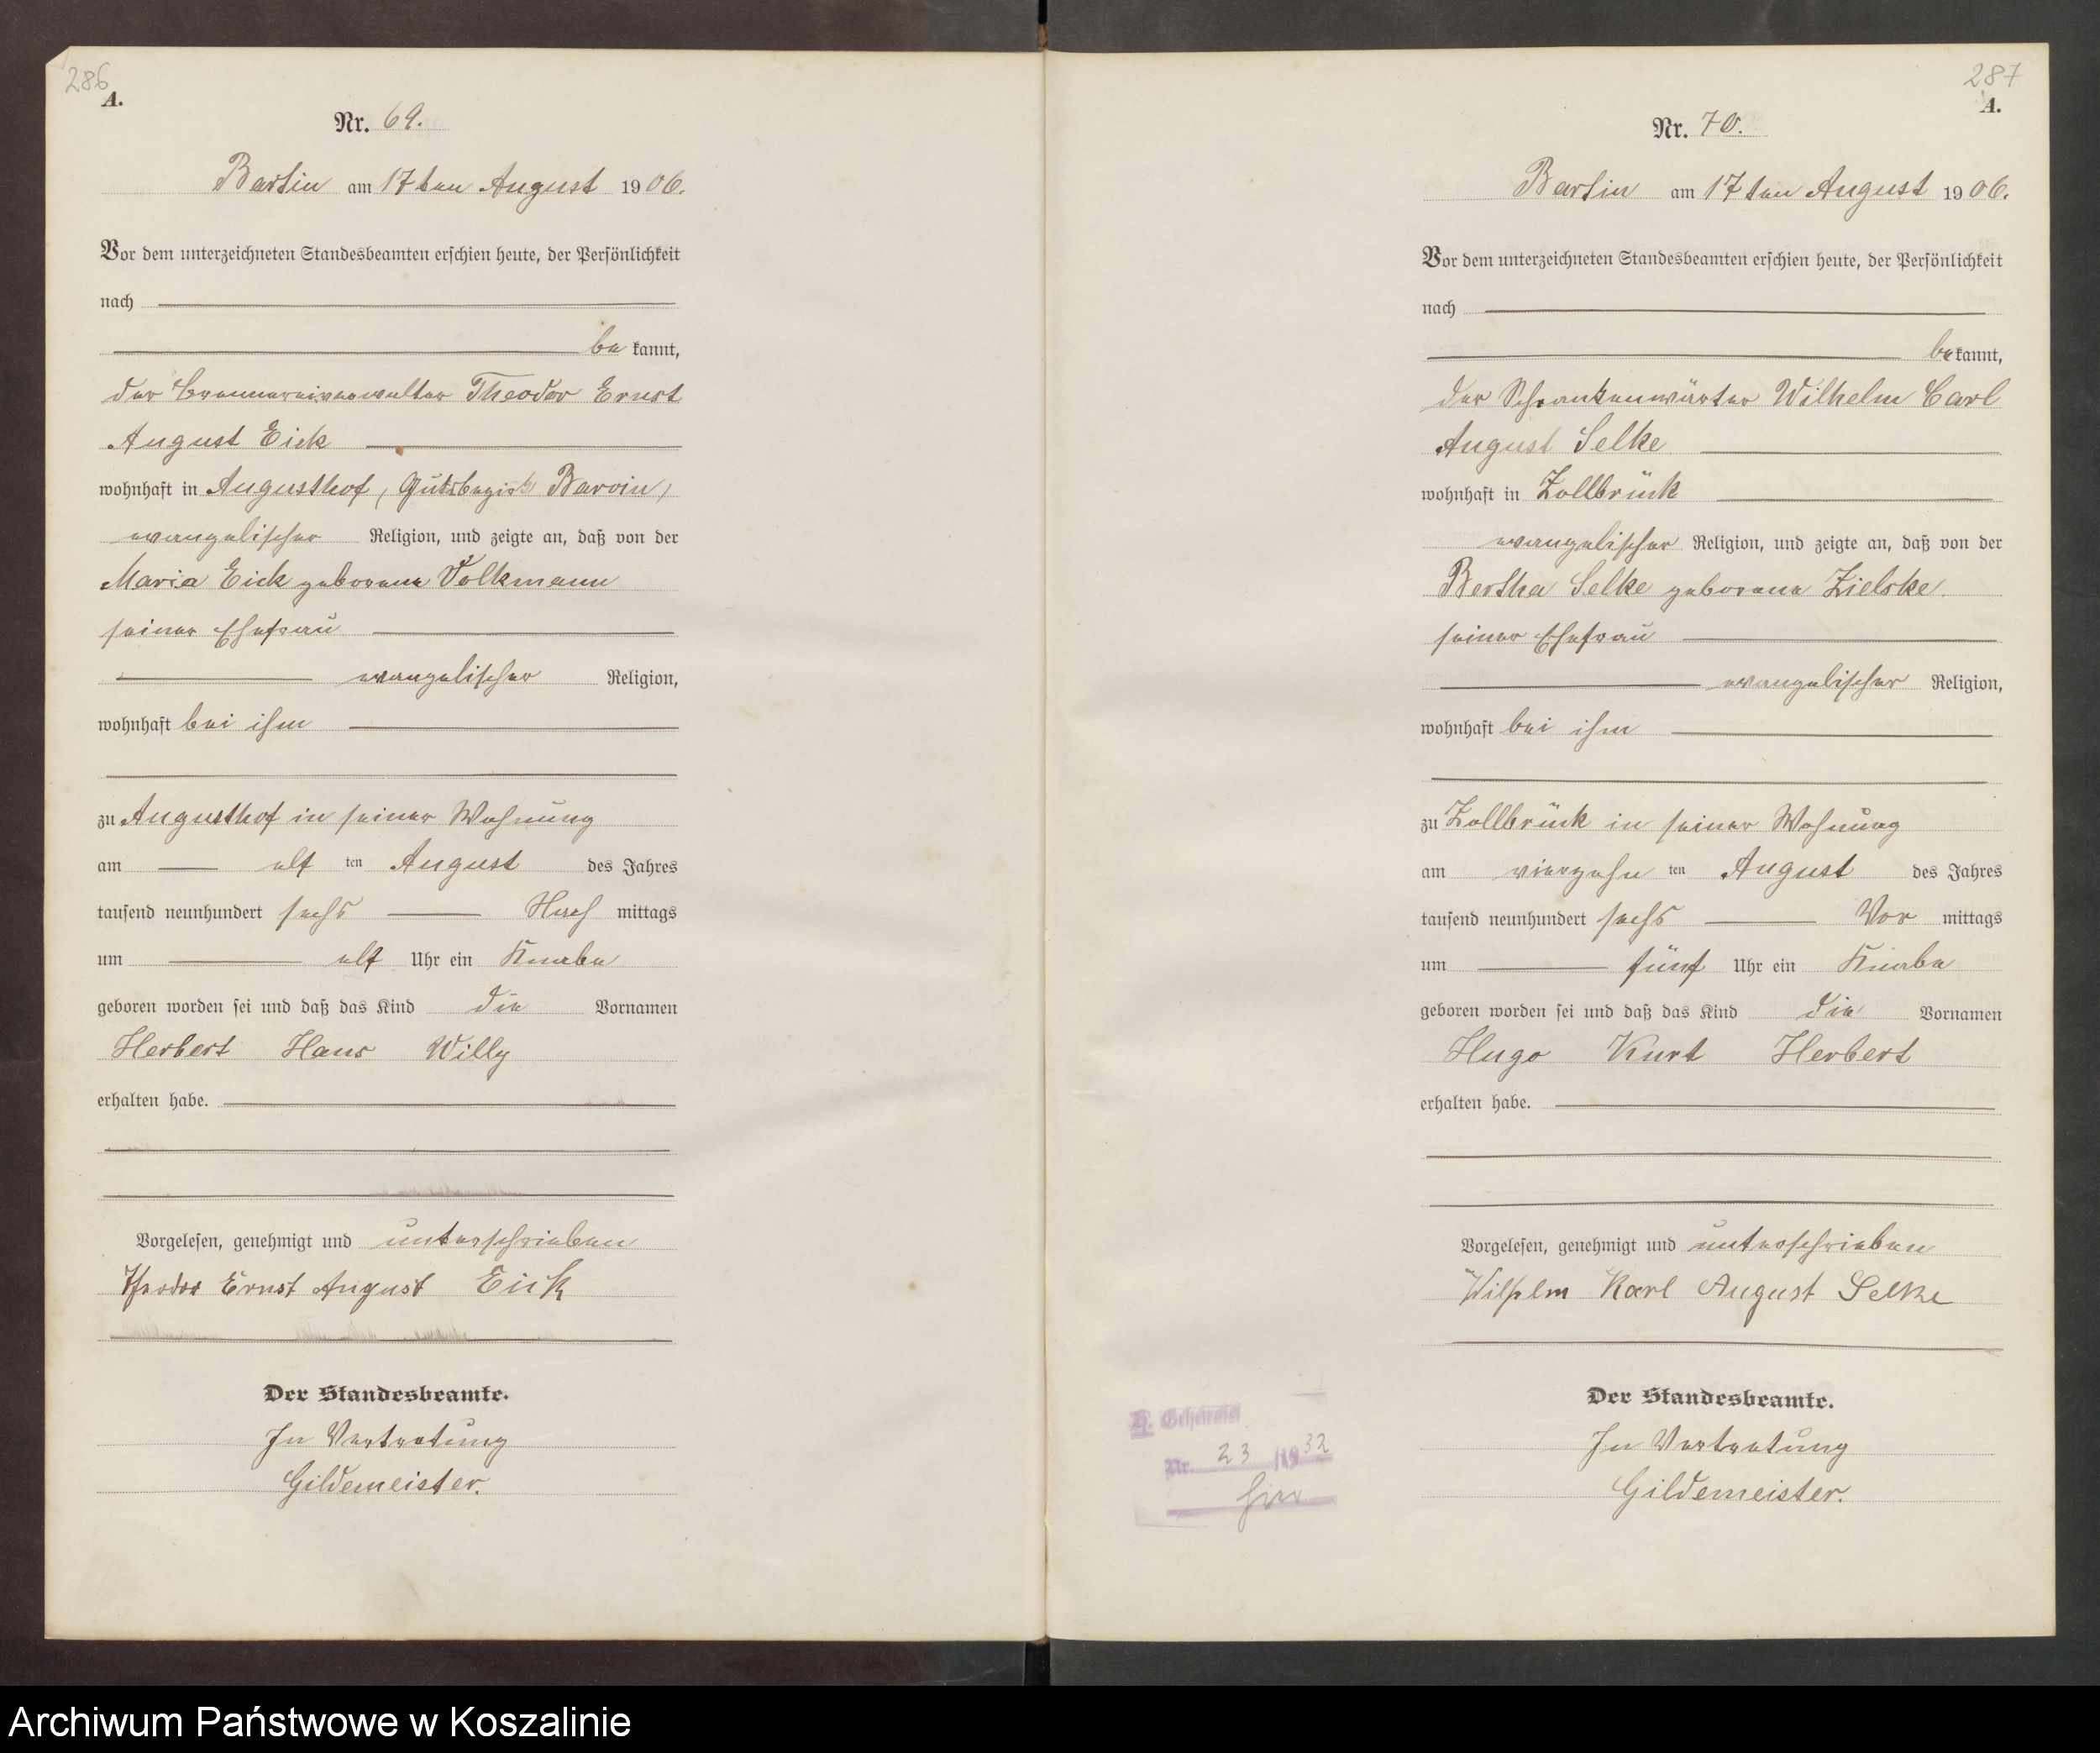 286
A.
Nr. 69.
Bartin am 17ten August 1906.
Vor dem unterzeichneten Standesbeamten erschien heute, der Persönlichkeit
nach
bekannt,
der Brennereiverwalter Theodor Ernst
August Eick
wohnhaft in Augusthof, Gutsbezirk Barvin,
evangelischer Religion, und zeigte an, daß von der
Maria Eick geborene Volkmann
seiner Ehefrau
evangelischer Religion,
wohnhaft bei ihm
zu Augusthof in seiner Wohnung
am elf ten August des Jahres
tausend neunhundert sechs Nach mittags
um elf Uhr ein Knabe
geboren worden sei und daß das Kind die Vornamen
Herbert Hans Willy
erhalten habe.
Vorgelesen, genehmigt und unterschrieben
Theodor Ernst August Eick
Der Standesbeamte.
In Vertretung
Gildemeister.
287
A.
Nr. 70.
Bartin am 17ten August 1906.
Vor dem unterzeichneten Standesbeamten erschien heute, der Persönlichkeit
nach
bekannt,
der Schrankenwärter Wilhelm Carl
August Selke
wohnhaft in Zollbrück
evangelischer Religion, und zeigte an, daß von der
Bertha Selke geborene Zielske.
seiner Ehefrau
evangelischer Religion,
wohnhaft bei ihm
zu Zollbrück in seiner Wohnung
am vierzehn ten August des Jahres
tausend neunhundert sechs Vor mittags
um fünf Uhr ein Knabe
geboren worden sei und daß das Kind die Vornamen
Hugo Kurt Herbert
erhalten habe.
Vorgelesen, genehmigt und unterschrieben
Wilhelm Karl August Selke
Der Standesbeamte.
In Vertretung
Gildemeister.
Nr. 23 /1932
Archiwum Państwowe w Koszalinie